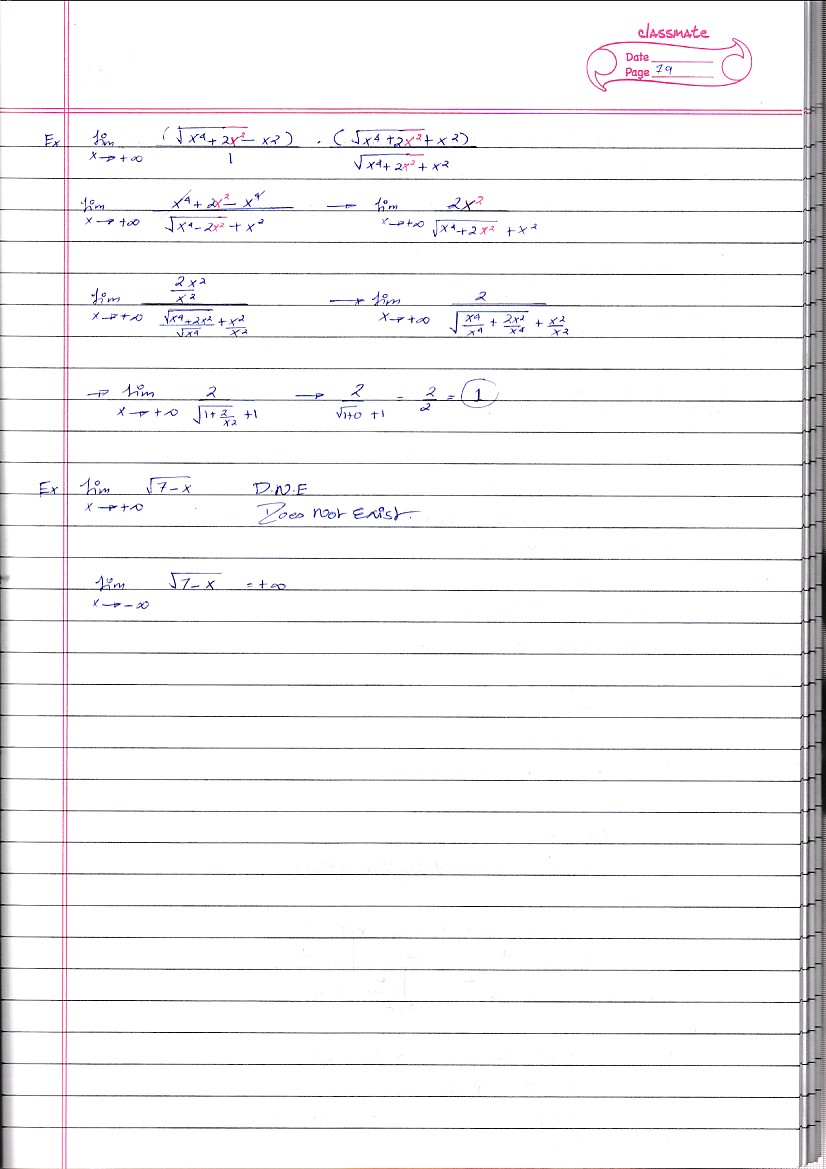 classmate
Date
Page 79
Ex lim x→+∞ (√(x⁴+2x²) - x²)/1 · (√(x⁴+2x²) + x²)/(√(x⁴+2x²) + x²)
lim x→+∞ (x⁴+2x²-x⁴)/(√(x⁴-2x²) + x²) → lim x→+∞ 2x²/(√(x⁴+2x²) + x²)
lim x→+∞ (2x²/x²)/(√(x⁴+2x²)/√x⁴ + x²/x²) → lim x→+∞ 2/(√(x⁴/x⁴ + 2x²/x⁴) + x²/x²)
→ lim x→+∞ 2/(√(1+2/x²) + 1) → 2/(√(1+0) + 1) = 2/2 = 1
Ex lim x→+∞ √(7-x) D.N.E
Does Not Exist.
lim x→-∞ √(7-x) = +∞